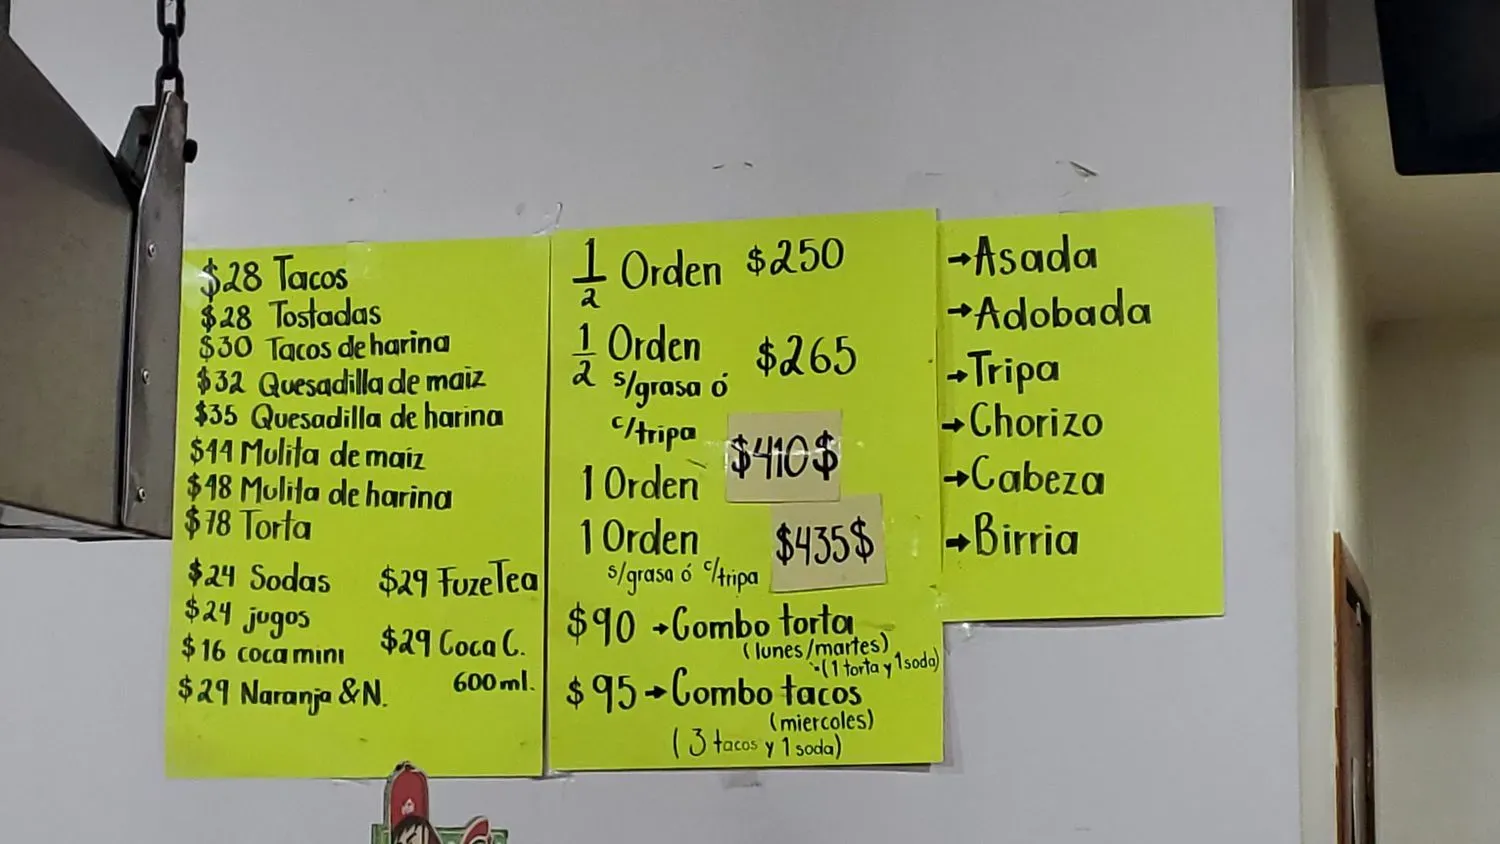 $28 Tacos
$28 Tostadas
$30 Tacos de harina
$32 Quesadilla de maíz
$35 Quesadilla de harina
$44 Mulita de maíz
$48 Mulita de harina
$78 Torta
$24 Sodas
$29 FuzeTea
$24 jugos
$29 Coca C.
$16 coca mini
600ml.
$29 Naranja & N.
1/2 Orden $250
1/2 Orden $265
s/grasa ó
c/tripa
$410$
1 Orden
1 Orden
$435$
s/grasa ó c/tripa
$90 →Combo torta
(lunes/martes)
(1 torta y 1 soda)
$95→Combo tacos
(miercoles)
(3 tacos y 1 soda)
→Asada
→Adobada
→Tripa
→Chorizo
→Cabeza
→Birria